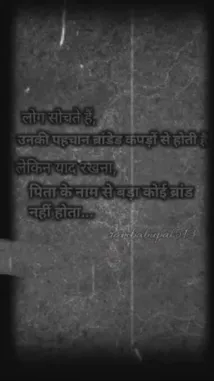 लोग सोचते हैं,
उनकी पहचान ब्रांडेड कपड़ों से होती है
लेकिन याद रखना,
पिता के नाम से बड़ा कोई ब्रांड
नहीं होता...